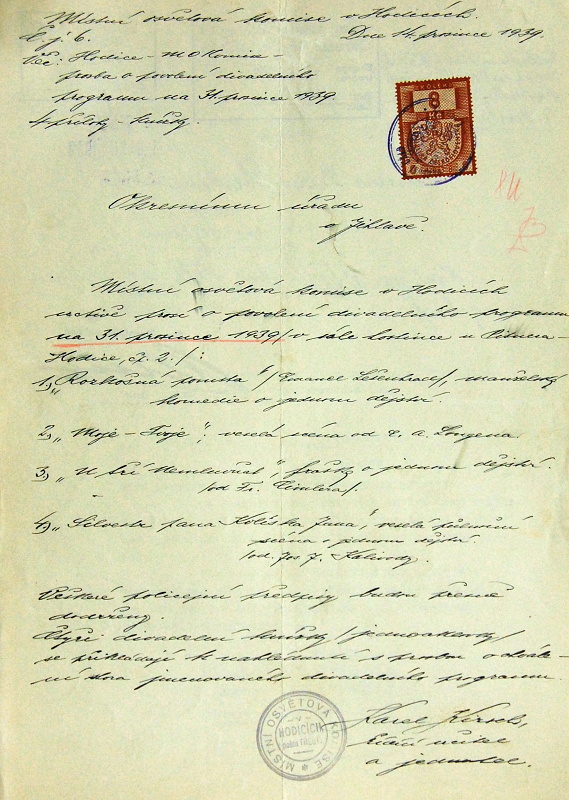 Místní osvětová komise v Hodicích.
Č. j. 6. Dne 14. prosince 1939.
Věc: Hodice - M O Komise -
prosba o povolení divadelního
programu na 31. prosince 1939.
4 přílohy - knížky.
8
Kč
Okresnímu úřadu
v Jihlavě.
Místní osvětová komise v Hodicích
uctivě prosí o povolení divadelního programu
na 31. prosince 1939 / v sále hostince u
Hodice, čp. 2. / :
1.) „Rozkošná pomsta" / Emanuel Lešehrad /, manželská
komedie o jednom dějství.
2.) „Moje - Tvoje", veselá scéna od E. A. Longena.
3.) „U tří Nemluvňat", fraška o jednom dějství.
/od Fr.
4.) „Silvestr pana Kolíska Jana", veselá
scéna o jednom dějství
/od. Jos. F. Kalivody.
Veškeré policejní předpisy budou přesně
dodrženy.
Čtyři divadelní knížky / jednoaktovky /
se přikládají k nahlédnutí s prosbou o
shora jmenovaného divadelního programu.
MÍSTNÍ OSVĚTOVÁ KOMISE
V
HODICÍCH
Karel
řídící učitel
a jednatel.